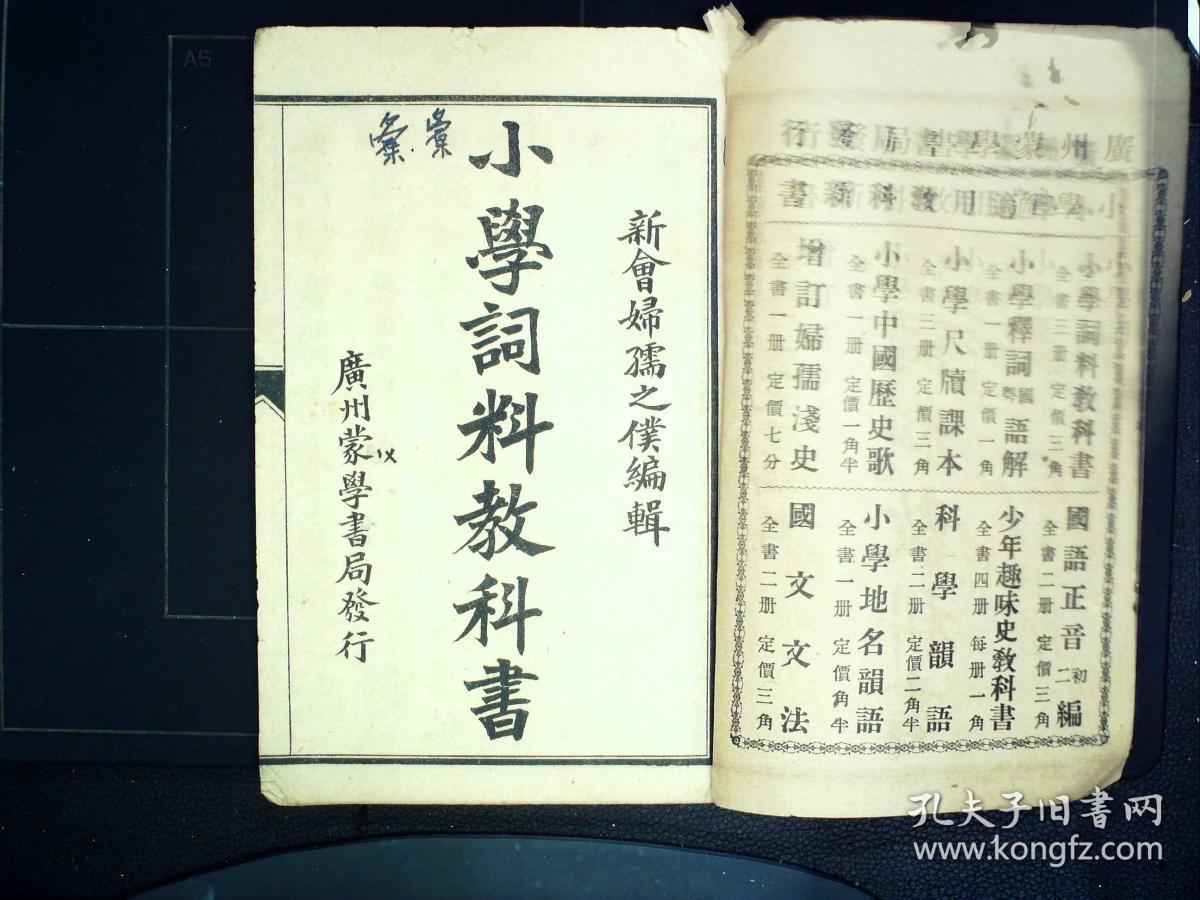 廣州蒙學書局發行
小學適用教科新書
小學詞料教科書
全書三册 定價三角
小學釋詞國粵語解
全書一册 定價一角
小學尺牘課本
全書三册 定價三角
小學中國歷史歌
全書一册 定價一角半
增訂婦孺淺史
全書一册 定價七分
國語正音初二編
全書二册 定價三角
少年趣味史敎科書
全書四册 每册一角
科學韻語
全書二册 定價二角半
小學地名韻語
全書一册 定價角半
國文文法
全書二册 定價三角
新會婦孺之僕編輯
小學詞料教科書
廣州蒙學書局發行
A5
孔夫子旧书网
www.kongfz.com